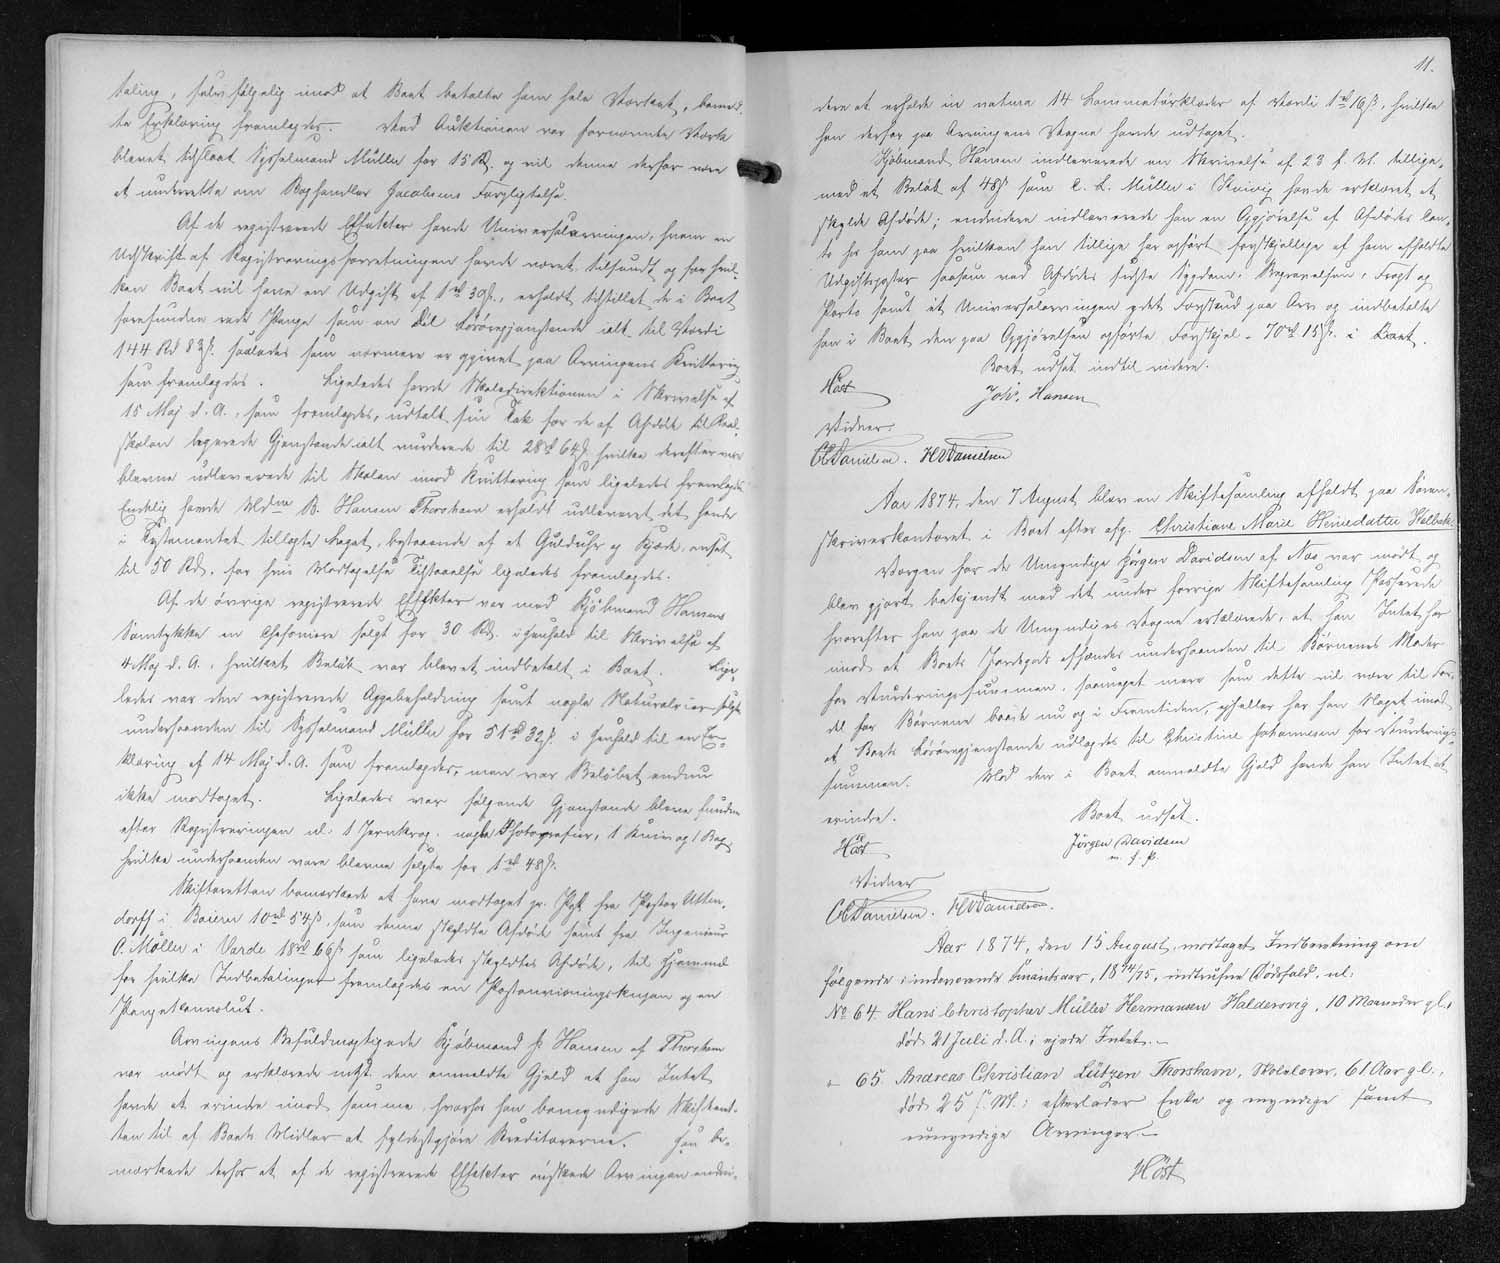 taling, selvfølgelig imod at Boet betalte ham hele Værket, benævn-
te Erklæring fremlagdes. Ved Auktionen var fornævnte Værk
blevet tilslaaet Sysselmand Müller for 15 Rd. og vil denne derfor være
at underrette om Boghandler Jacobsens Forpligtelse.
Af de registrerede Effekter havde Universalarvingen, hvem en
Udskrift af Registreringsforretningen havde været tilsendt og for hvil-
ken Boet vil have en Udgift af 1 rd 39 ß., erholdt tilstillet de i Boet
forefundne rede Penge som en Deel Løsøregjenstande ialt til Værdi
144 Rd 83 ß. saaledes som nærmere er opgivet paa Arvingens Kvittering
som fremlagdes. Ligeledes havde Skoledirektionen i Skrivelse af
15 Maj d. A., som fremlagdes, udtalt sin Tak for de af Afdøde til Real-
skolen legerede Gjenstande ialt vurderede til 28 rd 64 ß. hvilke derefter vare
blevne udleverede til Skolen imod Kvittering som ligeledes fremlagdes
Endelig havde Md ne B. Hansen Thorshavn erholdt udleveret det hende
i Testamentet tillagte Legat, bestaaende af et Gulduhr og Kjæde, anset
til 50 Rd., for hvis Modtagelse Tilstaaelse ligeledes fremlagdes.
Af de övrige registrerede Effekter var med Kjöbmand Hansens
Samtykke en Chefoniere solgt for 30 Rd. i Henhold til Skrivelse af
4 Maj d. A., hvilket Beløb var blevet indbetalt i Boet. Lige-
ledes var den registrerede Æggebeholdning samt nogle Naturalier solgte
underhaanden til Sysselmand Müller for 51 rd 32 ß. i Henhold til en Er-
klæring af 14 Maj d. A. som fremlagdes, men var Beløbet endnu
ikke modtaget. Ligeledes var følgende Gjenstande blevne fundne
efter Registreringen nl: 1 Jernkrog, nogle Photografier, 1 Kniv og 1 Bog,
hvilke underhaanden vare blevne solgte for 1 rd 48 ß.
Skifteretten bemærkede at have modtaget pr. Post fra Pastor Utten-
dorff i Baiern 10 rd 54 ß, som denne skyldte Afdøde samt fra Ingenieur
O. Möller i Varde 18 rd 66 ß som ligeledes skyldtes Afdøde, til Hjemmel
for hvilke Indbetalinger fremlagdes en Postanvisningskupon og en
Pengekonvolut.
Arvingens Befuldmægtigede Kjöbmand J. Hansen af Thorshavn
var mødt og erklærede mht. den anmeldte Gjeld at han Intet
havde at erindre imod samme, hvorfor han bemyndigede Skifteret-
ten til af Boets Midler at fyldestgjöre Kreditorerne. Han be-
mærkede derhos at af de registrerede Effekter önskede Arvingen endvi-
11.
dere at erholde in natura 14 Lommetörklæder af Værdi 1 rd 16 ß, hvilke
han derfor paa Arvingens Vegne havde udtaget.
Kjöbmand Hansen indleverede en Skrivelse af 23 f. M. tillige-
med et Beløb af 48 ß som C. L. Müller i Qvivig havde erklæret at
skylde Afdøde; endvidere indleverede han en Opgjörelse af Afdødes Con-
to hos ham paa hvilken han tillige har opfört forskjellige af ham afholdte
Udgiftsposter saasom ved Afdødes sidste Sygdom, Begravelsen, Fragt og
Porto samt et Universalarvingen ydet Forskud paa Arv og indbetalte
han i Boet den paa Opgjörelsen opførte Forskjel = 70 rd 15 ß. i Boet.
Boet udsat indtil videre.
Höst Johs. Hansen
Vidner:
CCDanielsen. HVDanielsen
Aar 1874, den 7 August blev en Skiftesamling afholdt paa Soren-
skriverkontoret i Boet efter afg. Christiane Marie Heinedatter Holbek.
Værgen for de Umyndige Jörgen Davidsen af Næs var mødt og
blev gjort bekjendt med det under forrige Skiftesamling Passerede
hvorefter han paa de Umyndiges Vegne erklærede, at han Intet har
imod at Boets Jordegods afhændes underhaanden til Børnenes Moder
for Vurderingssummen, saameget mere som dette vil være til For-
del for Børnene baade nu og i Fremtiden, ejheller har han Noget imod
at Boets Løsøregjenstande udlægges til Christine Johannesen for Vurderings-
summen. Mod den i Boet anmeldte Gjeld havde han Intet at
erindre. Boet udsat.
Höst Jørgen Davidsen
m. f. P.
Vidner
CCDanielsen. HVDanielsen.
Aar 1874, den 15 August, modtaget Indberetning om
følgende i indeværende Finantsaar, 1874/75, indtrufne Dödsfald, nl:
No 64. Hans Christopher Müller Hermansen Haldersvig, 10 Maaneder gl.,
död 21 Juli d. A.; ejede Intet.
" 65. Andreas Christian Lützen Thorshavn, Skolelærer, 61 Aar gl.,
död 25 f. M.; efterlader Enke og myndige samt
umyndige Arvinger.
Höst